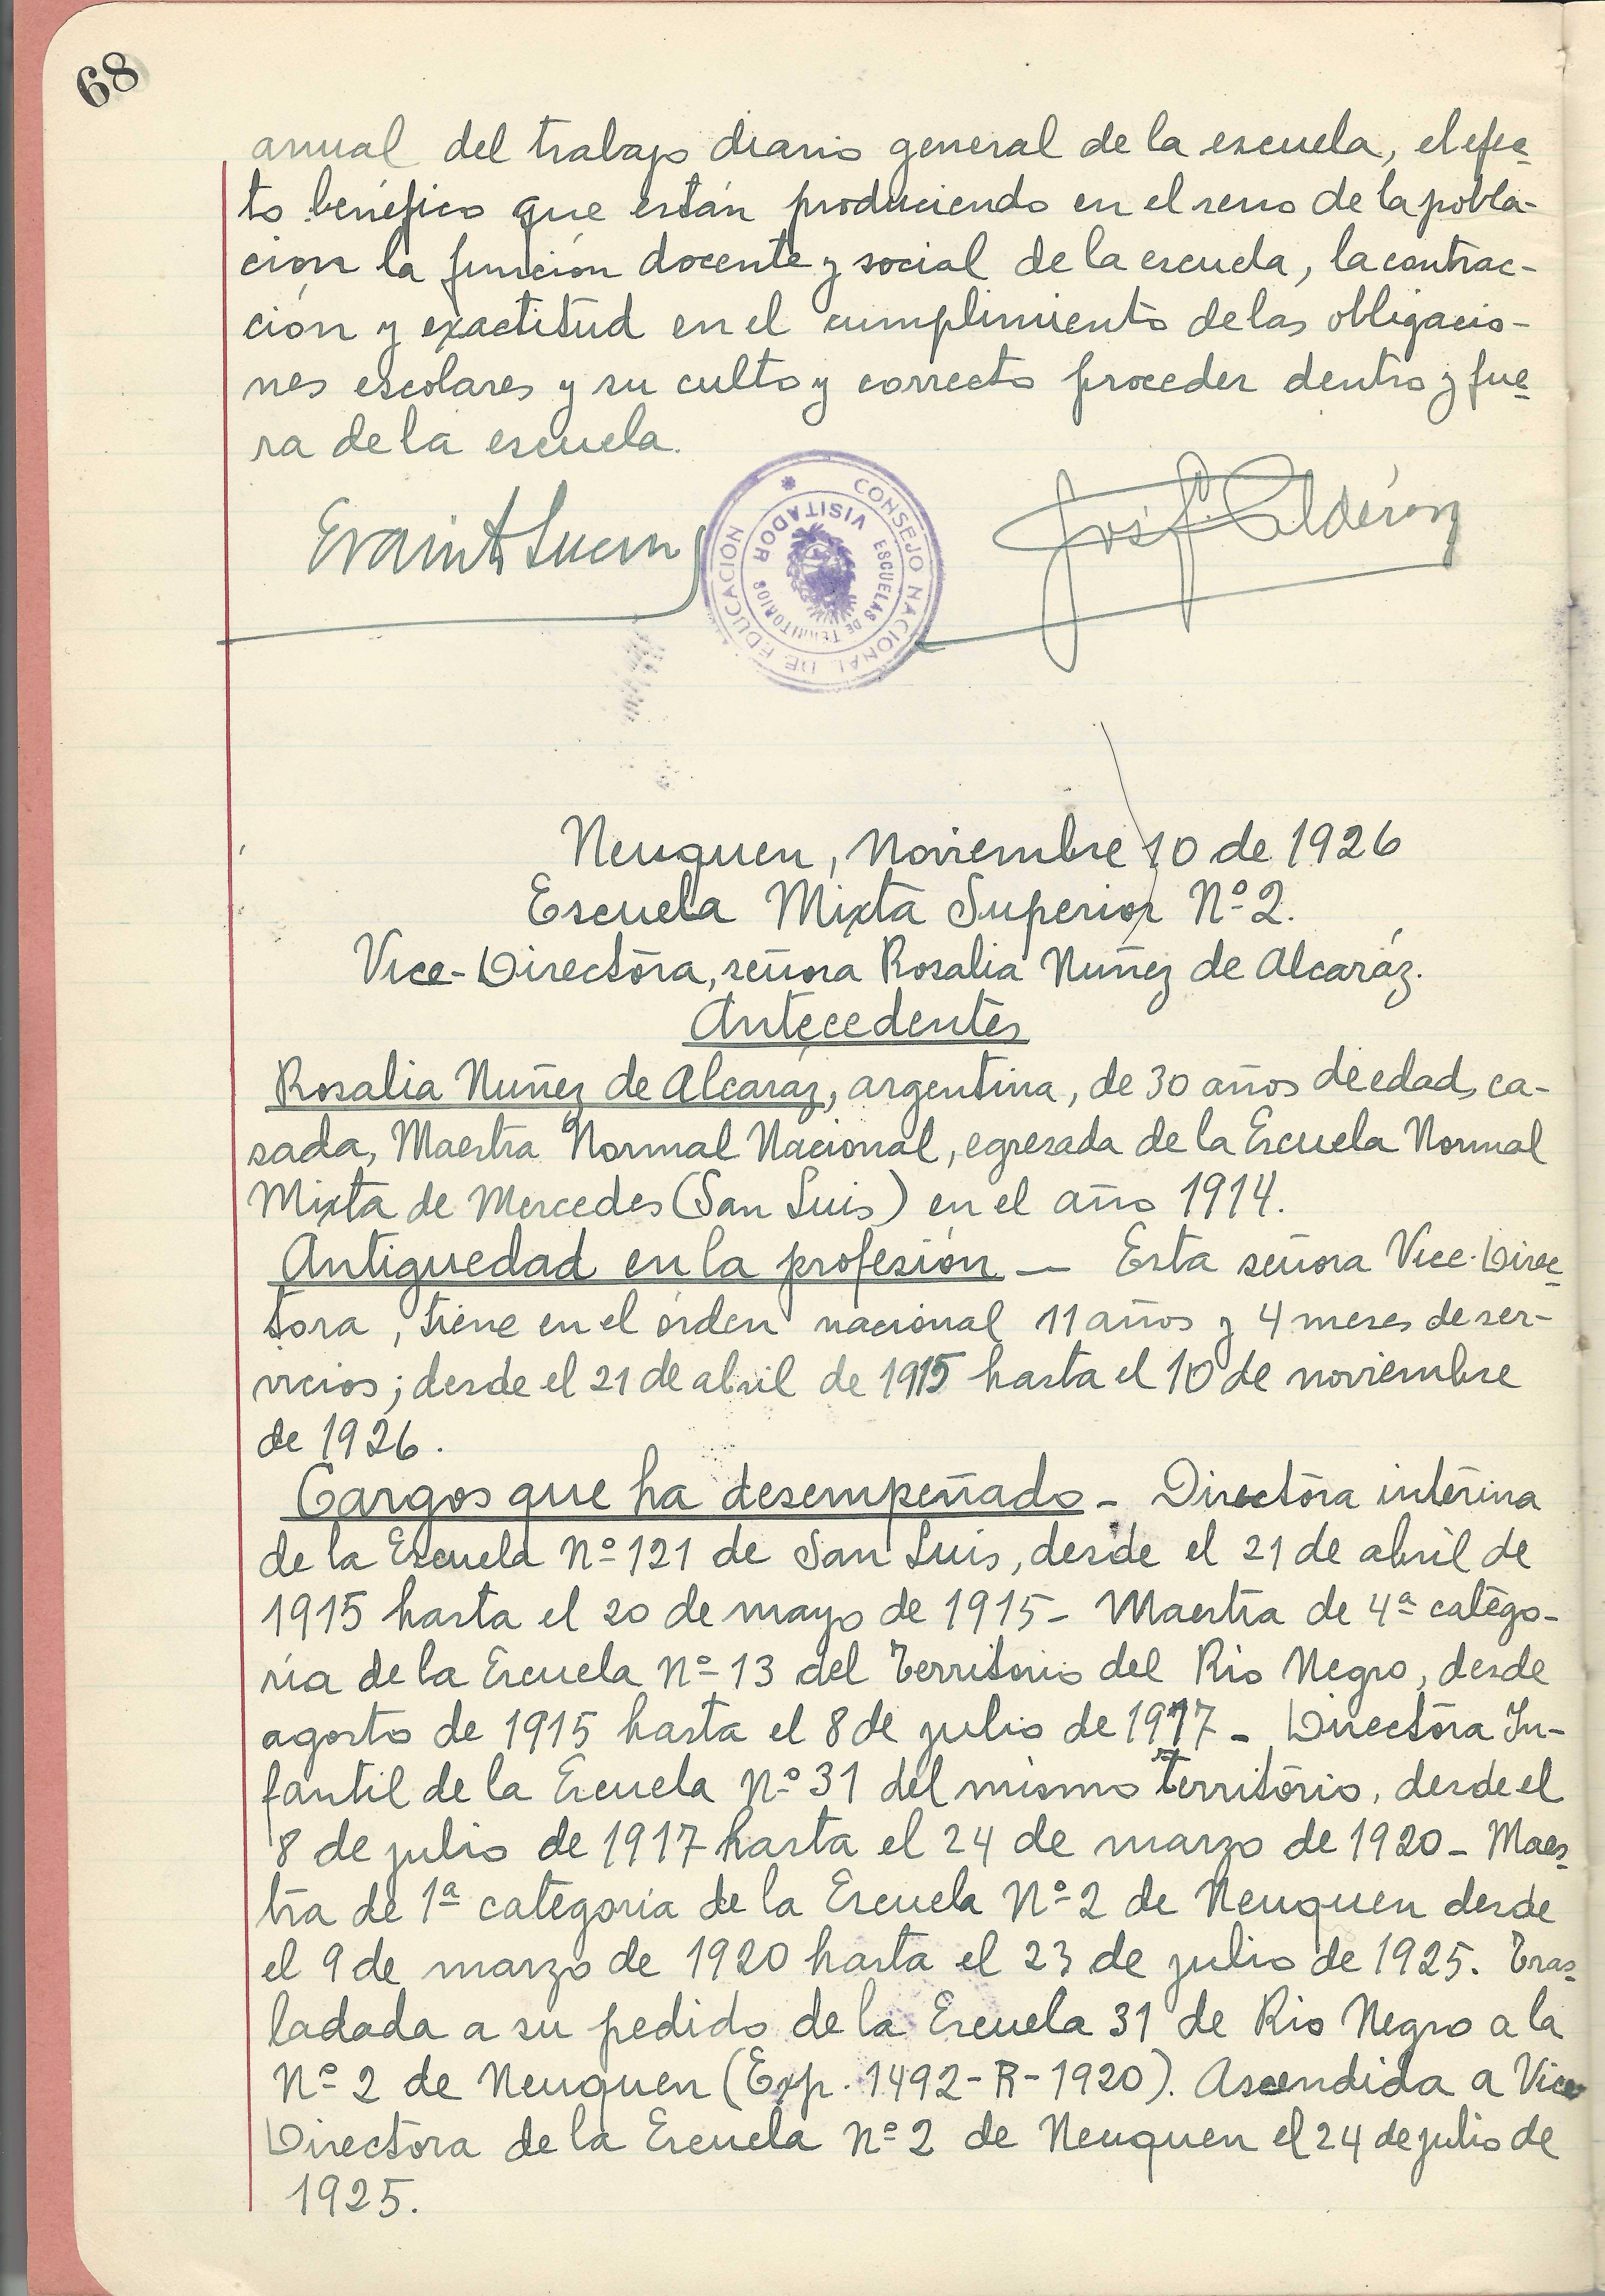 68
anual del trabajo diario general de la escuela, el efec-
to benéfico que están produciendo en el seno de la pobla-
ción la función docente y social de la escuela, la contrac-
ción y exactitud en el cumplimiento de las obligacio-
nes escolares y su culto y correcto proceder dentro y fue-
ra de la escuela.
CONSEJO NACIONAL DE EDUCACIÓN
VISITADOR
ESCUELAS DE TERRITORIOS
José J. Calderón
Neuquen, Noviembre 10 de 1926
Escuela Mixta Superior Nº 2.
Vice-Directora, señora Rosalia Nuñez de Alcaráz.
Antecedentes
Rosalia Nuñez de Alcaraz, argentina, de 30 años de edad, ca-
sada, Maestra Normal Nacional, egresada de la Escuela Normal
Mixta de Mercedes (San Luis) en el año 1914.
Antiguedad en la profesión — Esta señora Vice-Direc-
tora, tiene en el orden nacional 11 años y 4 meses de ser-
vicios; desde el 21 de abril de 1915 hasta el 10 de noviembre
de 1926.
Cargos que ha desempeñado - Directora interina
de la Escuela Nº 121 de San Luis, desde el 21 de abril de
1915 hasta el 20 de mayo de 1915 - Maestra de 4ª catego-
ria de la Escuela Nº 13 del Territorio del Rio Negro, desde
agosto de 1915 hasta el 8 de julio de 1917 - Directora In-
fantil de la Escuela Nº 31 del mismo territorio, desde el
8 de julio de 1917 hasta el 24 de marzo de 1920 - Maes-
tra de 1ª categoria de la Escuela Nº 2 de Neuquen desde
el 9 de marzo de 1920 hasta el 23 de julio de 1925. Tras-
ladada a su pedido de la Escuela 31 de Rio Negro a la
Nº 2 de Neuquen (Exp. 1492-R-1920). Ascendida a Vice
Directora de la Escuela Nº 2 de Neuquen el 24 de julio de
1925.